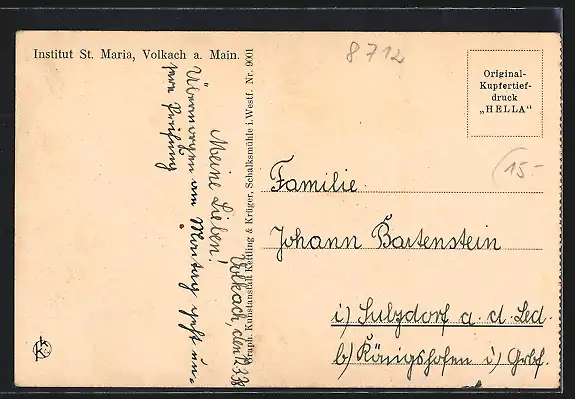 Institut St. Maria, Volkach a. Main.
8712
Original-
Kupfertief-
druck
„HELLA“
(15.-
Graph. Kunstanstalt Kettling & Krüger, Schalksmühle i.Westf. Nr. 9001
Volkach, den 12.3.38
Meine Lieben!
Übermorgen am Montag geht un-
sere Prüfung
Familie
Johann Bartenstein
i) Sulzdorf a. d. Led.
b) Königshofen i) Grbf.